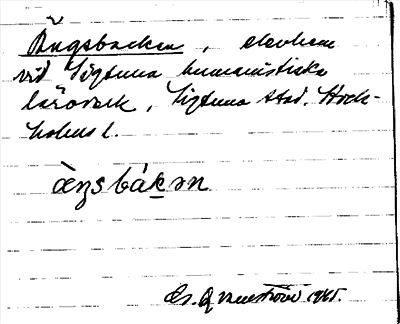 Ängsbacken, elevhem
vid Sigtuna humanistiska
läroverk, Sigtuna stad. Stock-
holms l.
æŋsbákən
1965.